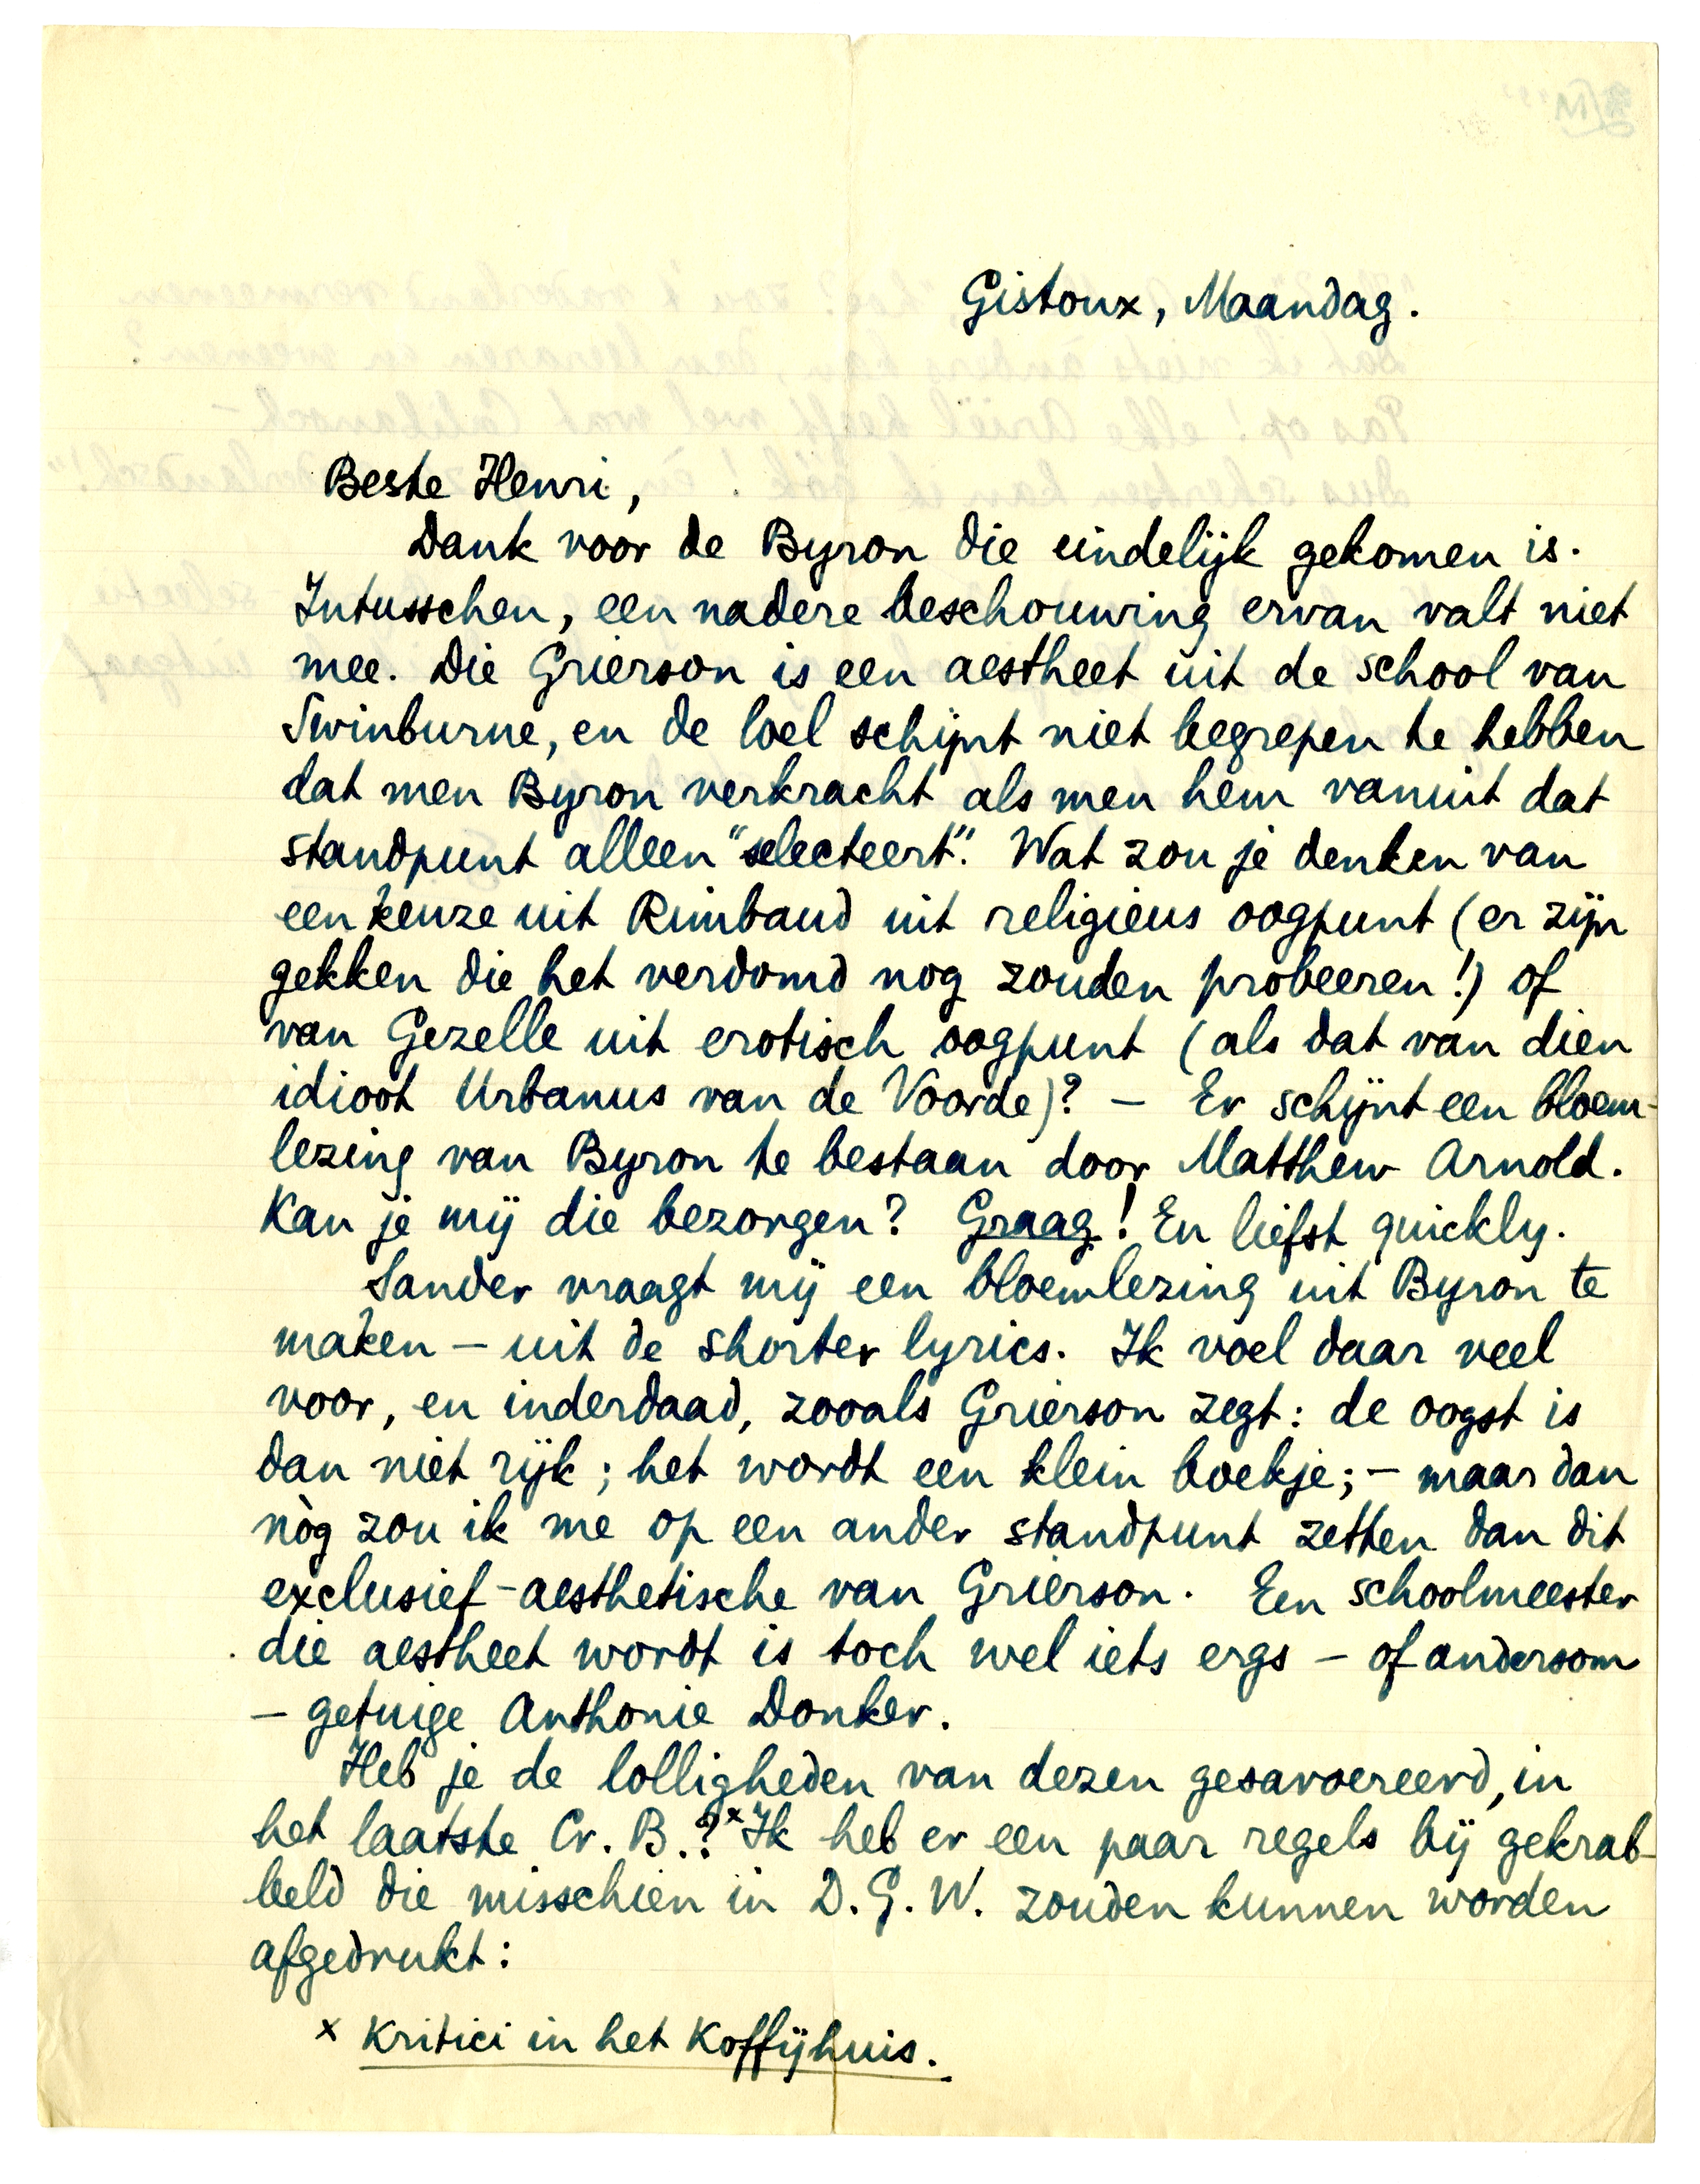 Gistoux, Maandag.
Beste Henri,
Dank voor de Byron die eindelijk gekomen is.
Intusschen, een nadere beschouwing ervan valt niet
mee. Die Grierson is een aestheet uit de school van
Swinburne, en de loel schijnt niet begrepen te hebben
dat men Byron verkracht als men hem vanuit dat
standpunt alleen "selecteert". Wat zou je denken van
een keuze uit Rimbaud uit religieus oogpunt (er zijn
gekken die het verdomd nog zouden probeeren!) of
van Gezelle uit erotisch oogpunt (als dat van dien
idioot Urbanus van de Voorde)? — Er schijnt een bloem-
lezing van Byron te bestaan door Matthew Arnold.
Kan je mij die bezorgen? Graag! En liefst quickly.
Sander vraagt mij een bloemlezing uit Byron te
maken — uit de shorter lyrics. Ik voel daar veel
voor, en inderdaad, zooals Grierson zegt: de oogst is
dan niet rijk; het wordt een klein boekje; — maar dan
nòg zou ik me op een ander standpunt zetten dan dit
exclusief-aesthetische van Grierson. Een schoolmeester
die aestheet wordt is toch wel iets ergs — of andersom
— getuige Anthonie Donker.
Heb je de lolligheden van dezen gesavoereerd, in
het laatste Cr. B.?x Ik heb er een paar regels bij gekrab-
beld die misschien in D.G.W. zouden kunnen worden
afgedrukt:
x Kritici in het Koffijhuis.